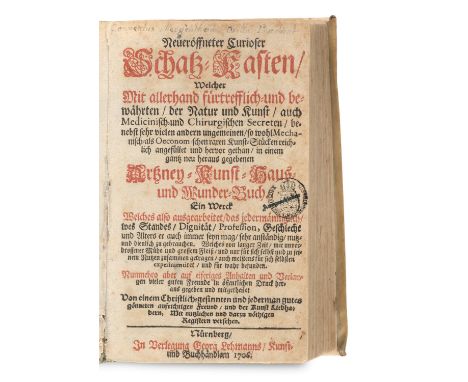 Neueröffneter Curioser
Schatz-Kasten/
Welcher
Mit allerhand fürtrefflich-und be-
währten/ der Natur und Kunst/ auch
Medicinisch-und Chirurgischen Secreten/ be-
nebst sehr vielen andern ungemeinen/ so wohl Mecha-
nisch-als Oeconomischen raren Kunst-Stücken reich-
lich angefüllet und hervor gethan/ in einem
gantz neu heraus gegebenen
Artzney-Kunst-Haus-
und Wunder-Buch
Ein Werck
Welches also ausgearbeitet/ das jedermänniglich/
wes Standes/ Dignität/ Profession, Geschlecht
und Alters er auch immer seyn mag/ sehr anständig/ nutz-
und dienlich zu gebrauchen. Welches von langer Zeit/ mit unver-
droßener Mühe und grossem Fleiß/ und nur für sich selbst und zu sei-
nem Nutzen zusammen getragen/ auch meistens für sich selbsten
experimentiret/ und für wahr befunden.
Nunmehro aber auf eifriges Anhalten und Verlan-
gen vieler guten Freunde in öffentlichen Druck her-
aus gegeben und mitgetheilet
Von einem Christlich-gesinnten und jederman gutes
gönneten aufrichtigen Freund/ und der Kunst Liebha-
bern. Mit nutzlichen und darzu nöthigen
Registern versehen.
Nürnberg/
In Verlegung Georg Lehmanns/ Kunst-
und Buchhändlern 1706.